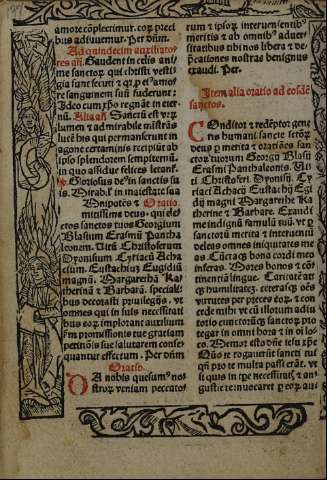 amore cōplectimur. eorū preci
bus adiuuemur. Per dñm.
Ad quindecim auxiliato
res añ. Gaudent in celis ani
me sanctorū qui christi vesti
gia sunt secuti et qr p ei9 amo
re sanguinem suū fuderunt:
Ideo cum xp̄o regnāt in eter
nū. Alia añ. Sancti est veru
lumen ⁊ admirabile ministrās
lucē his qui permanserunt in
agone certaminis recipiūt ab
ipso splendorem sempiternū
in quo assidue felices letant̄.
Gloriosus de9 in sanctis su
is. Mirabilꝭ in maiestate sua
Omnipotēs ⁊ Oratio
mitissime deus. qui ele
ctos sanctos tuos Georgium
Blasium Erasmū Pantha
leonum. Vitū Christoferum
Dyonisium Cyriacū Acha
cium. Eustachiuȝ Egidiū
magnū. Margarethā Ka
therinā ⁊ Barbarā. speciali
bus decorasti priuilegijs. vt
omnes qui in suis necessitati
bus eorū implorant auxilium
scdm promissionis tue gratiam
petitiōis sue salutarem conse
quantur effectum. Per dñm
Oratio.
DA nobis quesum9 no
strorū veniam peccato
rum ⁊ ipsorū interuenientib9
meritis ⁊ ab omnib9 aduer
sitatibus tibi nos libera ⁊ de
precationes nostras benignus
exaudi. Per.
Item alia oratio ad eosdē
sanctos.
COnditor ⁊ redēptor gene
ris humani sancte sctōrū
deus p merita ⁊ oratiōes san
ctorū tuorum Georgij Blasij
Erasmi Panthaleonis. Ui
ti Christoferi Dyonisij. Cy
riaci Achacij Eustachij Egi
dij magni Margarethe Ka
therine ⁊ Barbare. Exaudi
me indignū famulū tuū. vt p
sanctorū merita ⁊ interuentū
deleas omnes iniquitates me
as. Cūctaqȝ bona cordi meo
inseras. Mores bonos ⁊ con
tinentiā lingue. Caritatē at
qȝ humilitatē. ceterasqȝ oēs
virtutes per preces eorū. ⁊ con
cede mihi vt cū illorum adiu
torio cunctorūqȝ sanctorū pro
tegar in omni hora ⁊ in oī lo
co. Memor esto dñe iesu xp̄e
Quō te rogauerūt sancti tui
qñ pro te multa passi erāt. vt
si quis in tpe necessitatꝭ ⁊ an
gustie te inuocaret p eorū aux